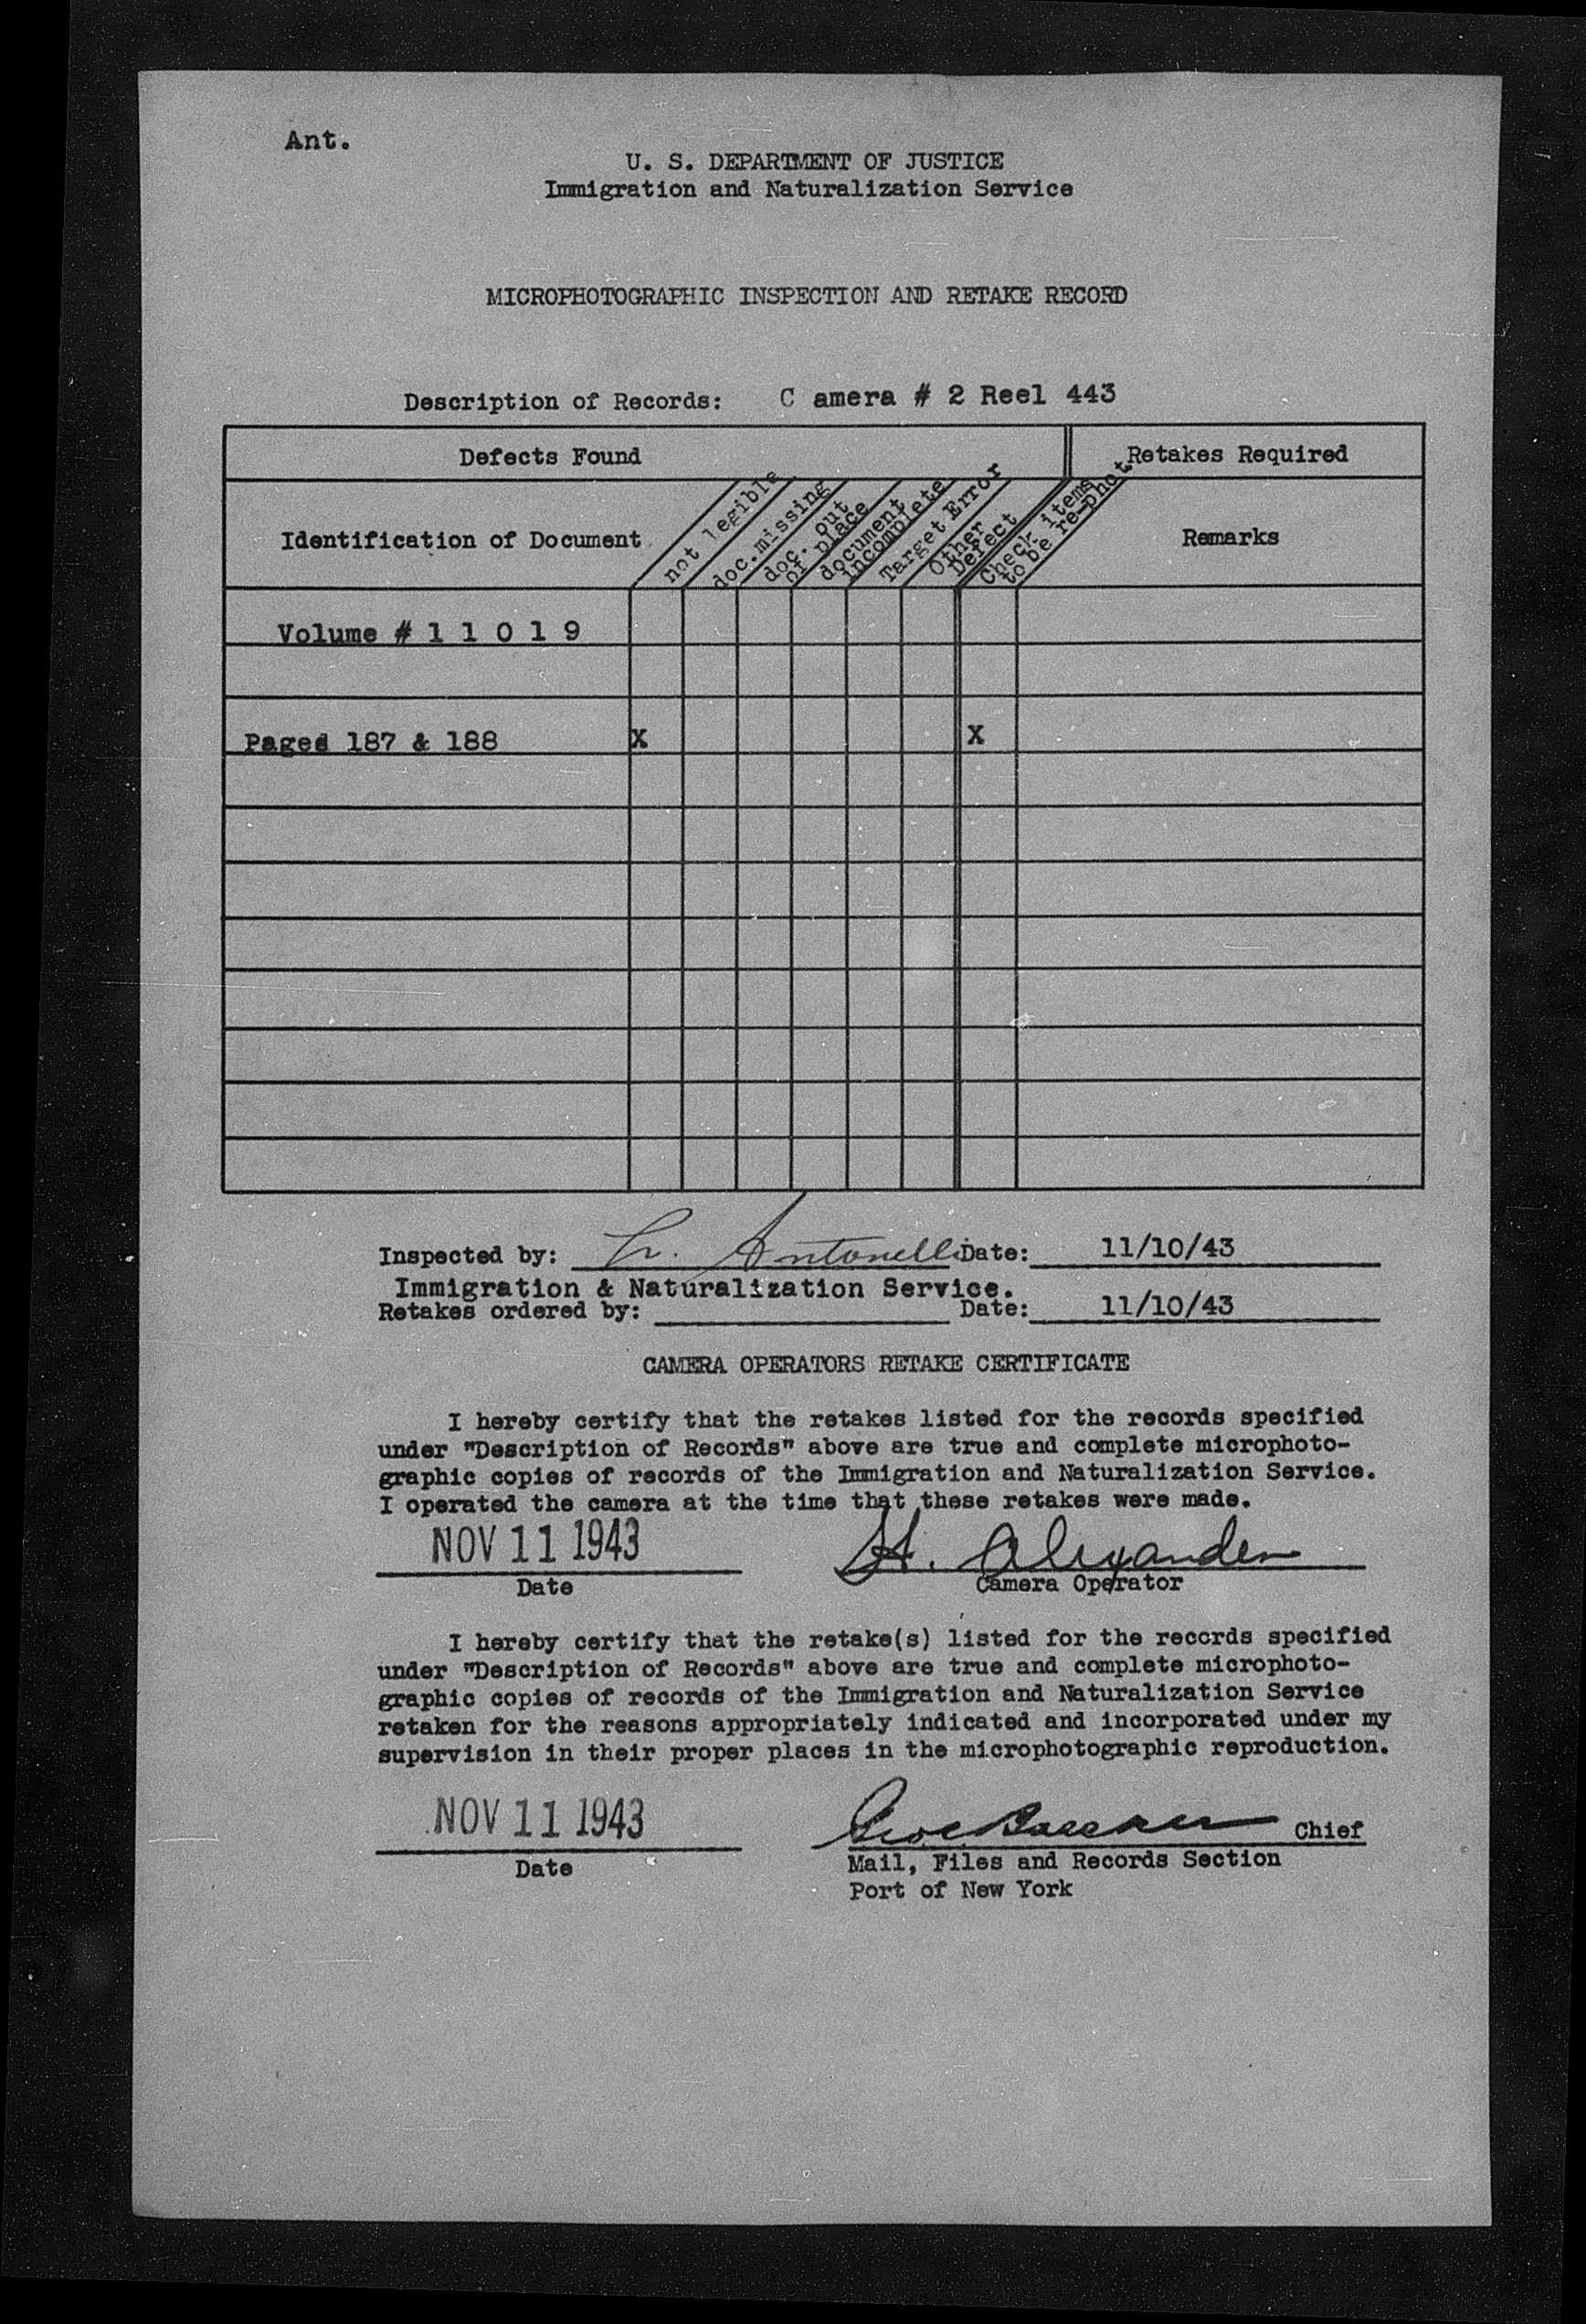 Ant.
U. S. DEPARTMENT OF JUSTICE
Immigration and Naturalization Service
MICROPHOTOGRAPHIC INSPECTION AND RETAKE RECORD
Description of Records: C amera # 2 Reel 443
Defects Found
Retakes Required
Identification of Document
not legible
doc.missing
doc. out
of place
document
incomplete
Target Error
Other
Defect
Check items
to be re-phot
Remarks
Volume # 1 1 0 1 9
Paged 187 & 188 X X
Inspected by: Antonelli Date: 11/10/43
Immigration & Naturalization Service.
Retakes ordered by: Date: 11/10/43
CAMERA OPERATORS RETAKE CERTIFICATE
I hereby certify that the retakes listed for the records specified
under "Description of Records" above are true and complete microphoto-
graphic copies of records of the Immigration and Naturalization Service.
I operated the camera at the time that these retakes were made.
NOV 11 1943 H. Alexander
Date Camera Operator
I hereby certify that the retake(s) listed for the records specified
under "Description of Records" above are true and complete microphoto-
graphic copies of records of the Immigration and Naturalization Service
retaken for the reasons appropriately indicated and incorporated under my
supervision in their proper places in the microphotographic reproduction.
NOV 11 1943 Chief
Date
Mail, Files and Records Section
Port of New York